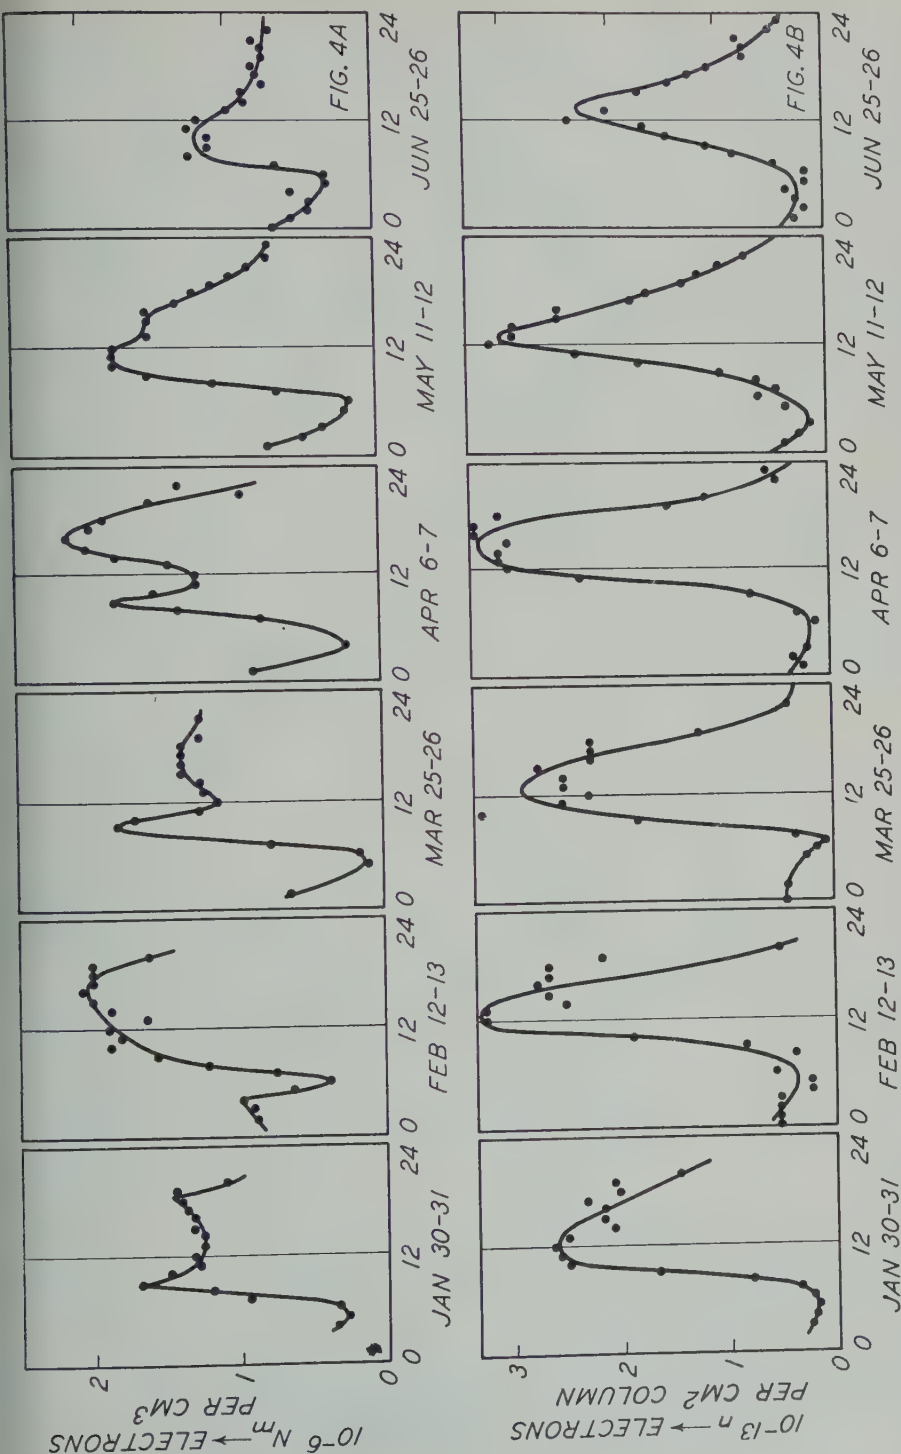 FIG. 4A
10⁻⁶ Nₘ → ELECTRONS
PER CM³
2
1
0
0 12 24
JAN 30-31
0 12 24
FEB 12-13
0 12 24
MAR 25-26
0 12 24
APR 6-7
0 12 24
MAY 11-12
0 12 24
JUN 25-26
FIG. 4B
10⁻¹³ n → ELECTRONS
PER CM² COLUMN
3
2
1
0
0 12 24
JAN 30-31
0 12 24
FEB 12-13
0 12 24
MAR 25-26
0 12 24
APR 6-7
0 12 24
MAY 11-12
0 12 24
JUN 25-26